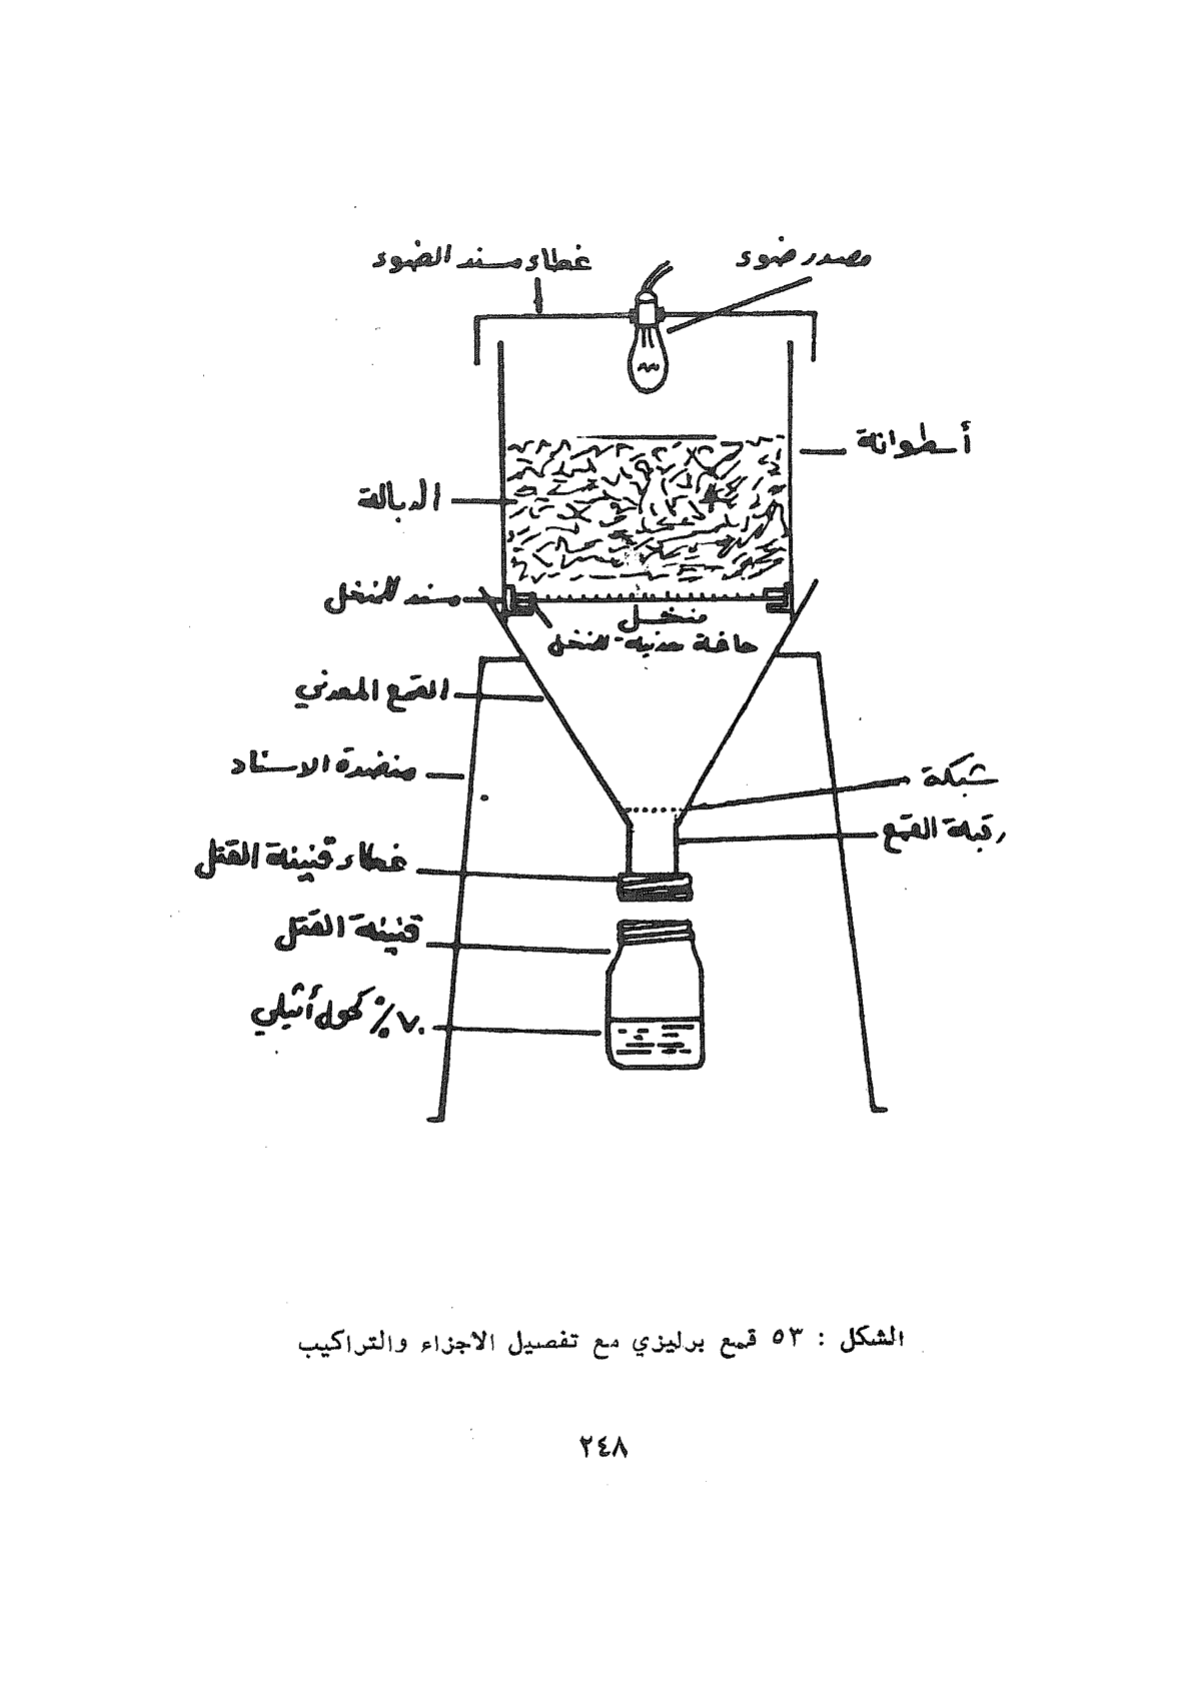 غطاء مسند الضوء
مصدر ضوء
أسطوانة
الدبالة
مسند المنخل
منخل
حافة معدنية للمنخل
القمع المعدني
منضدة الاسناد
شبكة
رقبة القمع
غطاء قنينة القتل
قنينة القتل
٧٠٪ كحول أثيلي
الشكل : ٥٣ قمع برليزي مع تفصيل الاجزاء والتراكيب
٢٤٨